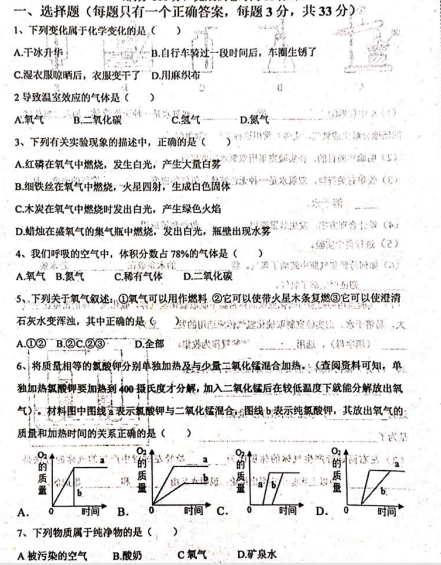 一、选择题（每题只有一个正确答案，每题 3 分，共 33 分）
1、下列变化属于化学变化的是（　　）
A.干冰升华　　B.自行车骑过一段时间后，车圈生锈了
C.湿衣服晾晒后，衣服变干了　D.用麻织布
2 导致温室效应的气体是（　　）
A.氧气　B.二氧化碳　C.氢气　D.氮气
3、下列有关实验现象的描述中，正确的是（　　）
A.红磷在氧气中燃烧，发生白光，产生大量白雾
B.细铁丝在氧气中燃烧，火星四射，生成白色固体
C.木炭在氧气中燃烧时发出白光，产生绿色火焰
D.蜡烛在盛氧气的集气瓶中燃烧，发出白光，瓶壁出现水雾
4、我们呼吸的空气中，体积分数占 78%的气体是（　　）
A.氧气　B.氮气　C.稀有气体　D.二氧化碳
5、下列关于氧气叙述：①氧气可以用作燃料 ②它可以使带火星木条复燃③它可以使澄清
石灰水变浑浊，其中正确的是（　　）
A.①②　B.②C.②③　D.全部
6、将质量相等的氯酸钾分别单独加热及与少量二氧化锰混合加热。（查阅资料可知，单
独加热氯酸钾要加热到 400 摄氏度才分解，加入二氧化锰后在较低温度下就能分解放出氧
气）。材料图中图线 a 表示氯酸钾与二氧化锰混合，图线 b 表示纯氯酸钾，其放出氧气的
质量和加热时间的关系正确的是（　　）
A. O₂的质量 a b 0 时间　B. O₂的质量 a b 0 时间　C. O₂的质量 a b 0 时间　D. O₂的质量 a b 0 时间
7、下列物质属于纯净物的是（　　）
A 被污染的空气　B.酸奶　C 氧气　D.矿泉水